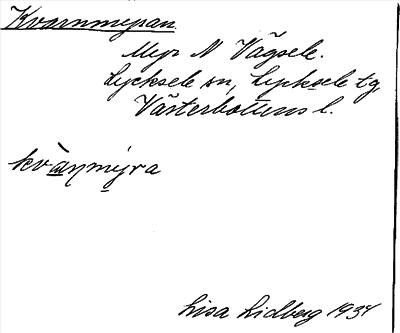 Kvarnmyran
Myr N Vägsele.
Lycksele sn, Lycksele tg
Västerbottens l.
kvàṇmýra
Lisa Lidberg 1934